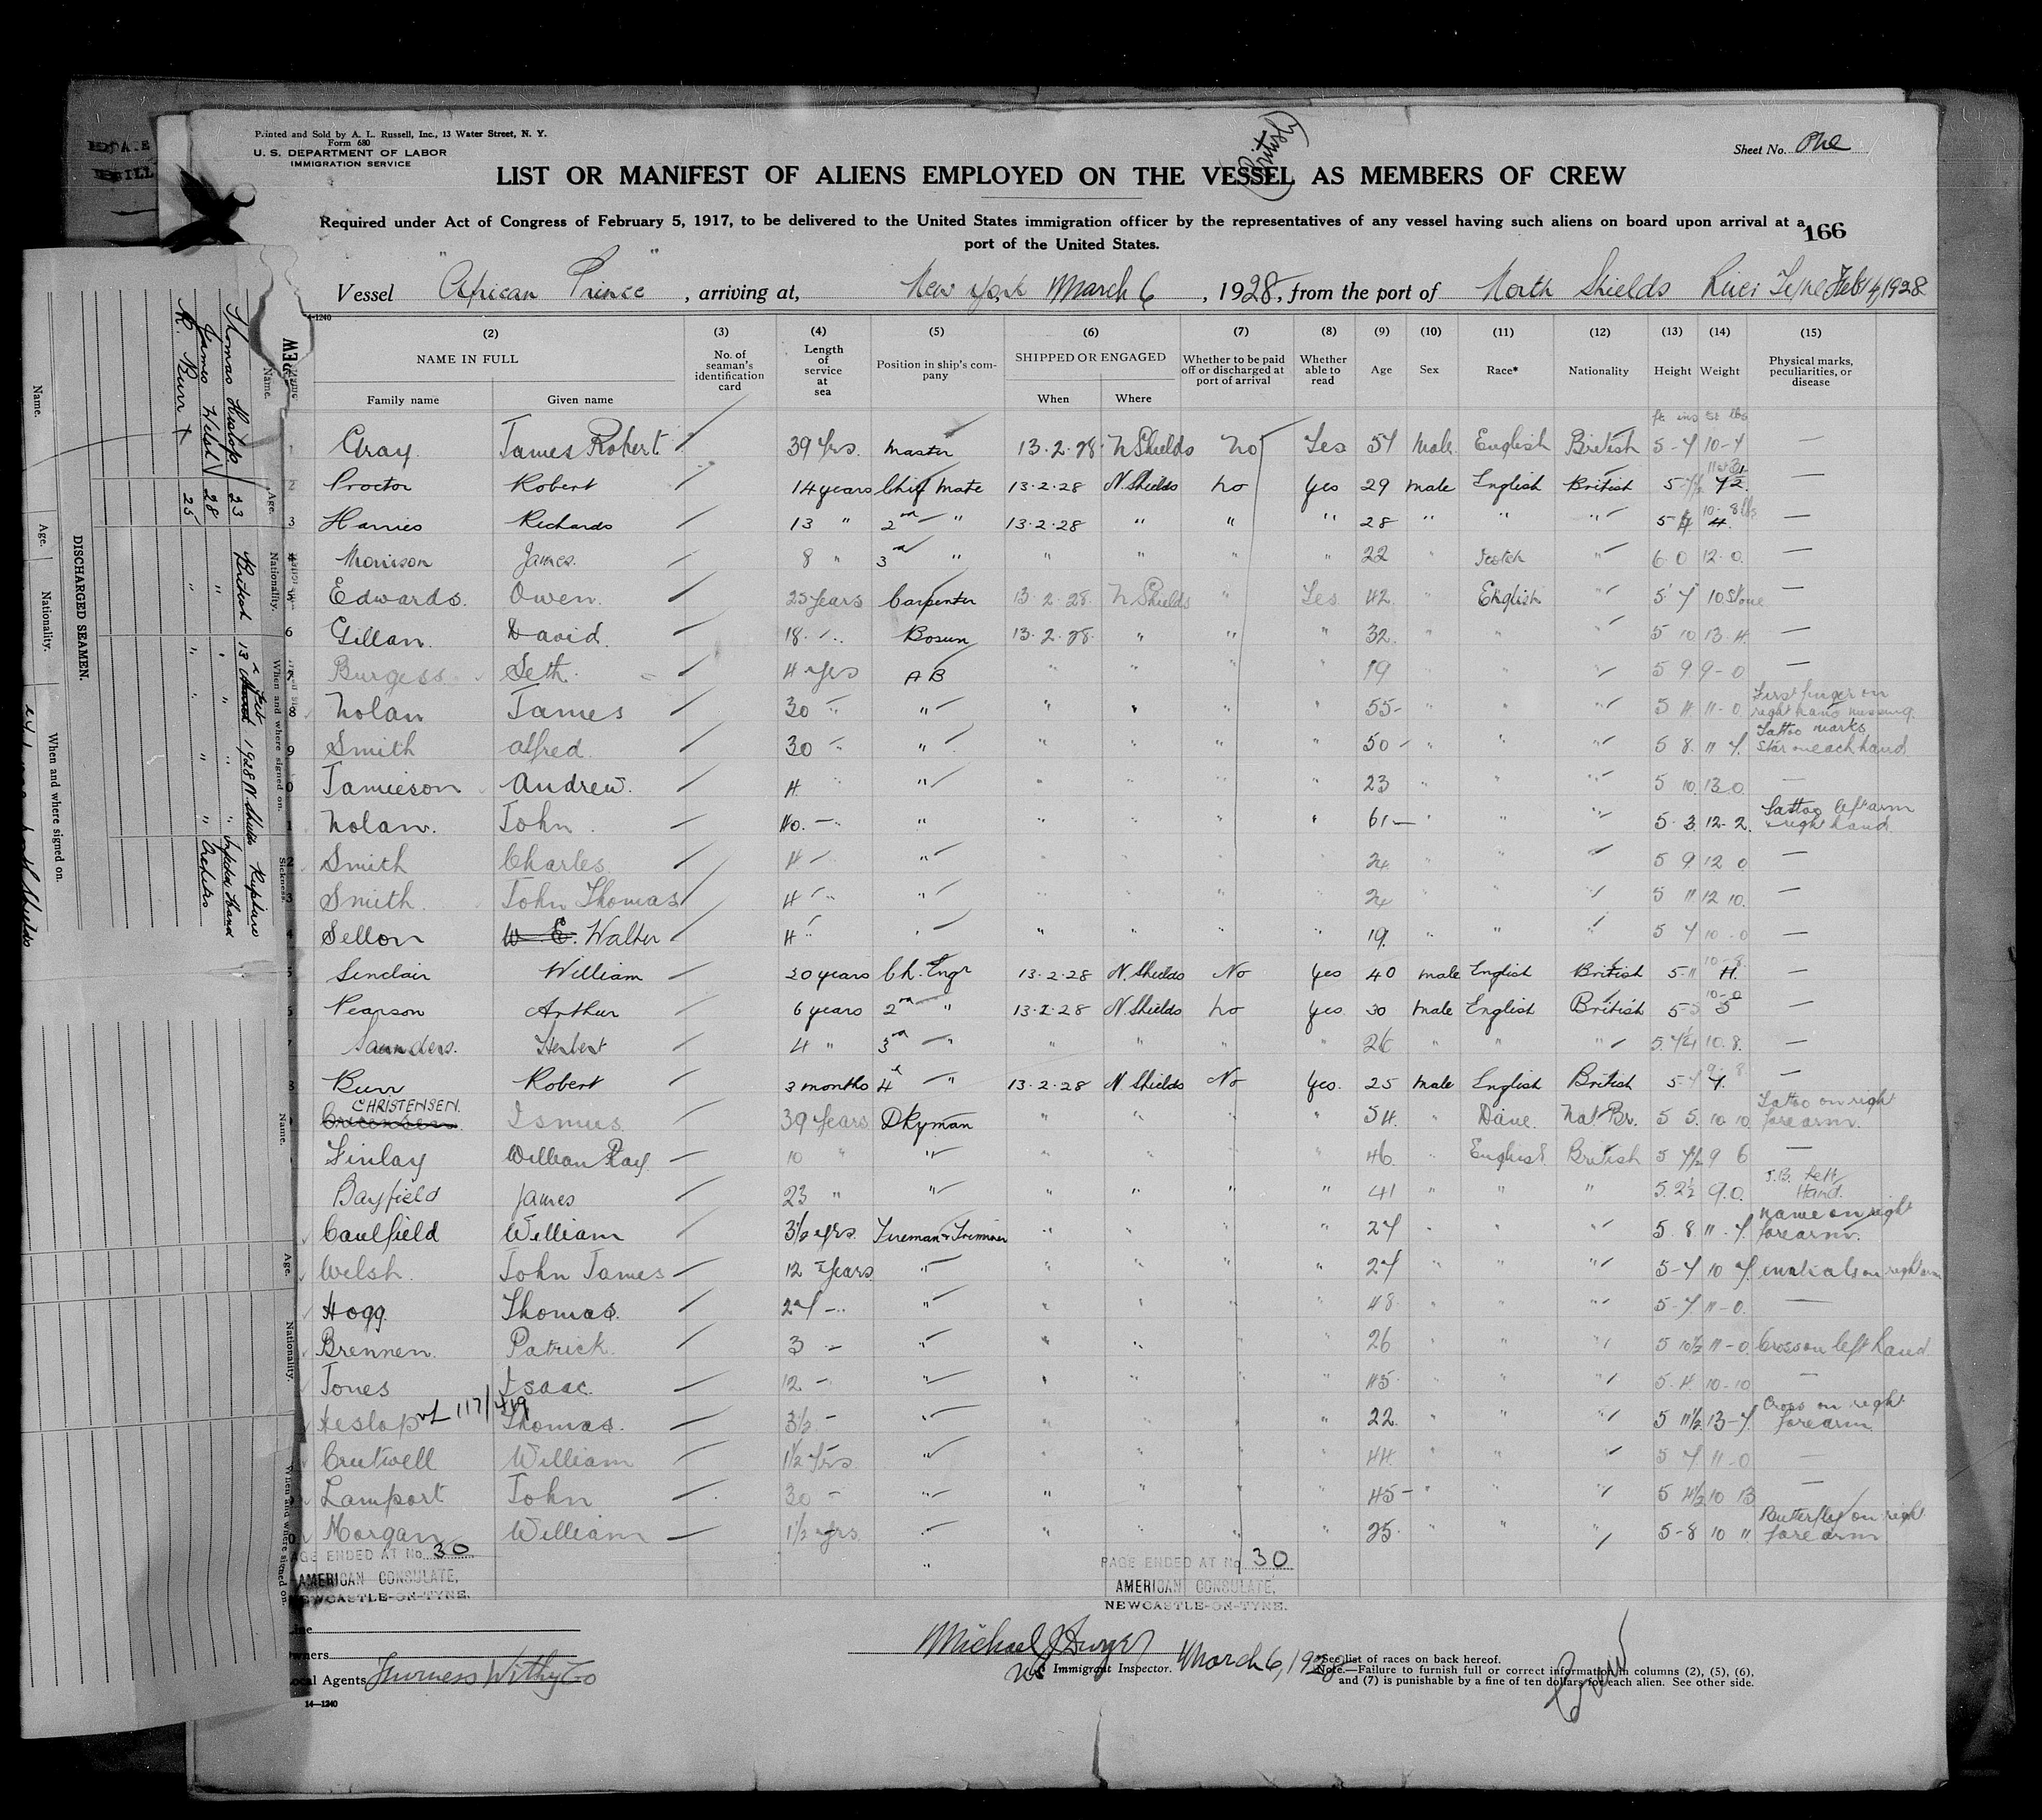 Printed and Sold by A. L. Russell, Inc., 13 Water Street, N. Y.
Form 680
U. S. DEPARTMENT OF LABOR
IMMIGRATION SERVICE
(British)
Sheet No. One
LIST OR MANIFEST OF ALIENS EMPLOYED ON THE VESSEL AS MEMBERS OF CREW
Required under Act of Congress of February 5, 1917, to be delivered to the United States immigration officer by the representatives of any vessel having such aliens on board upon arrival at a
port of the United States.
166
Vessel "African Prince", arriving at, New York March 6, 1928, from the port of North Shields River Tyne Feb 14, 1928
(2) (3) (4) (5) (6) (7) (8) (9) (10) (11) (12) (13) (14) (15)
NAME IN FULL No. of seaman's identification card Length of service at sea Position in ship's company SHIPPED OR ENGAGED Whether to be paid off or discharged at port of arrival Whether able to read Age Sex Race* Nationality Height Weight Physical marks, peculiarities, or disease
Family name Given name When Where
ft ins st lbs
1 Gray James Robert 39 Yrs. Master 13.2.28 N Shields No Yes 57 Male English British 5-7 10-7 —
2 Proctor Robert 14 years Chief Mate 13.2.28 N. Shields No Yes 29 Male English British —
3 Harries Richards 13 " 2nd " 13.2.28 " " " 28 " " " —
Morrison James. 8 " 3rd " " " " " 22 " Scotch " 6.0 12.0. —
Edwards. Owen. 25 years Carpenter 13.2.28. N Shields " Yes 42 " English " 5 7 10 Stone —
6 Gillan. David. 18. " Bosun 13.2.28. " " " 32. " " " 5 10 13.4. —
Burgess Seth. 4 yrs AB " " " " 19 " " " 5 9 9-0 —
8 Nolan James 30 " " " " " " 55 " " " 5 4. 11-0. First finger on right hand missing.
9 Smith Alfred. 30 " " " " " " 50 " " " 5 8. 11 7. Tattoo marks Star on each hand
0 Jamieson Andrew. 4. " " " " " " 23 " " " 5 10. 13.0. —
Nolan. John. 40. " " " " " " 61 " " " 5.3. 12-2. Tattoo left arm " right hand
2 Smith Charles 4 " " " " " " 24. " " " 5 9 12 0 —
Smith. John Thomas 4 " " " " " " 24 " " " 5 11 12 10. —
4 Sellon Walter 4 " " " " " " 19. " " " 5 7 10-0 —
Sinclair William 20 years Ch. Engr 13.2.28 N. Shields No Yes 40 male English British 5-11 —
Pearson Arthur 6 years 2nd " 13.2.28 N. Shields No Yes 30 Male English British —
Saunders. Herbert 4 " 3rd " " " " " 26 " " " 10.8. —
Burr Robert 3 months 4th " 13.2.28 N. Shields No Yes. 25 Male English British —
CHRISTENSEN. Ismus. 39 Years Dkyman " " " " 54. " Dane. Nat. Br. 5 5. 10 10 Tattoo on right forearm.
Finlay William Ray. 10 " " " " " " 46. " English. British 5 7½ 9 6 —
Bayfield James 23 " " " " " " 41 " " " 5. 2½ 9.0. J.B. Left Hand.
Caulfield William 3½ yrs. Fireman & Trimmer " " " " 27 " " " 5 8. 11.7. Name on right forearm.
Welsh. John James 12 Years " " " " " 27 " " " 5-7 10 7. initials on right arm
Hogg. Thomas. 27 " " " " " " 48. " " " 5-7. 11-0. —
Brennen. Patrick. 3 " " " " " " 26 " " " 5 10½ 11-0. Cross on left hand
Jones Isaac. 12 " " " " " " 45 " " " 5.4. 10-10 —
Heslop 117/419 Thomas. 3½ " " " " " " 22. " " " 5 11½ 13-7. Cross on right forearm
Crutwell William 1½ yrs " " " " " 44. " " " 5 7 11-0 —
Lamport John 30 " " " " " " 45 " " " 5 4½ 10 13 —
Morgan William 1½ yrs. " " " " " 25. " " " 5-8 10 11 Butterfly on right forearm
PAGE ENDED AT No. 30
AMERICAN CONSULATE,
NEWCASTLE-ON-TYNE.
PAGE ENDED AT No. 30
AMERICAN CONSULATE,
NEWCASTLE-ON-TYNE.
Owners
Local Agents Furness Withy & Co
14—1240
Immigrant Inspector. March 6, 1928
*See list of races on back hereof.
Note.—Failure to furnish full or correct information in columns (2), (5), (6),
and (7) is punishable by a fine of ten dollars for each alien. See other side.
DISCHARGED SEAMEN.
Name. Age. Nationality. When and where signed on. Sickness.
Thomas Heslop 23 British 13 Feb 1928 N. Shields Rupture
James Welsh 28 " " " " Infected Hand
R. Burr 25 " " " "
Name. Age. Nationality. When and where signed on.